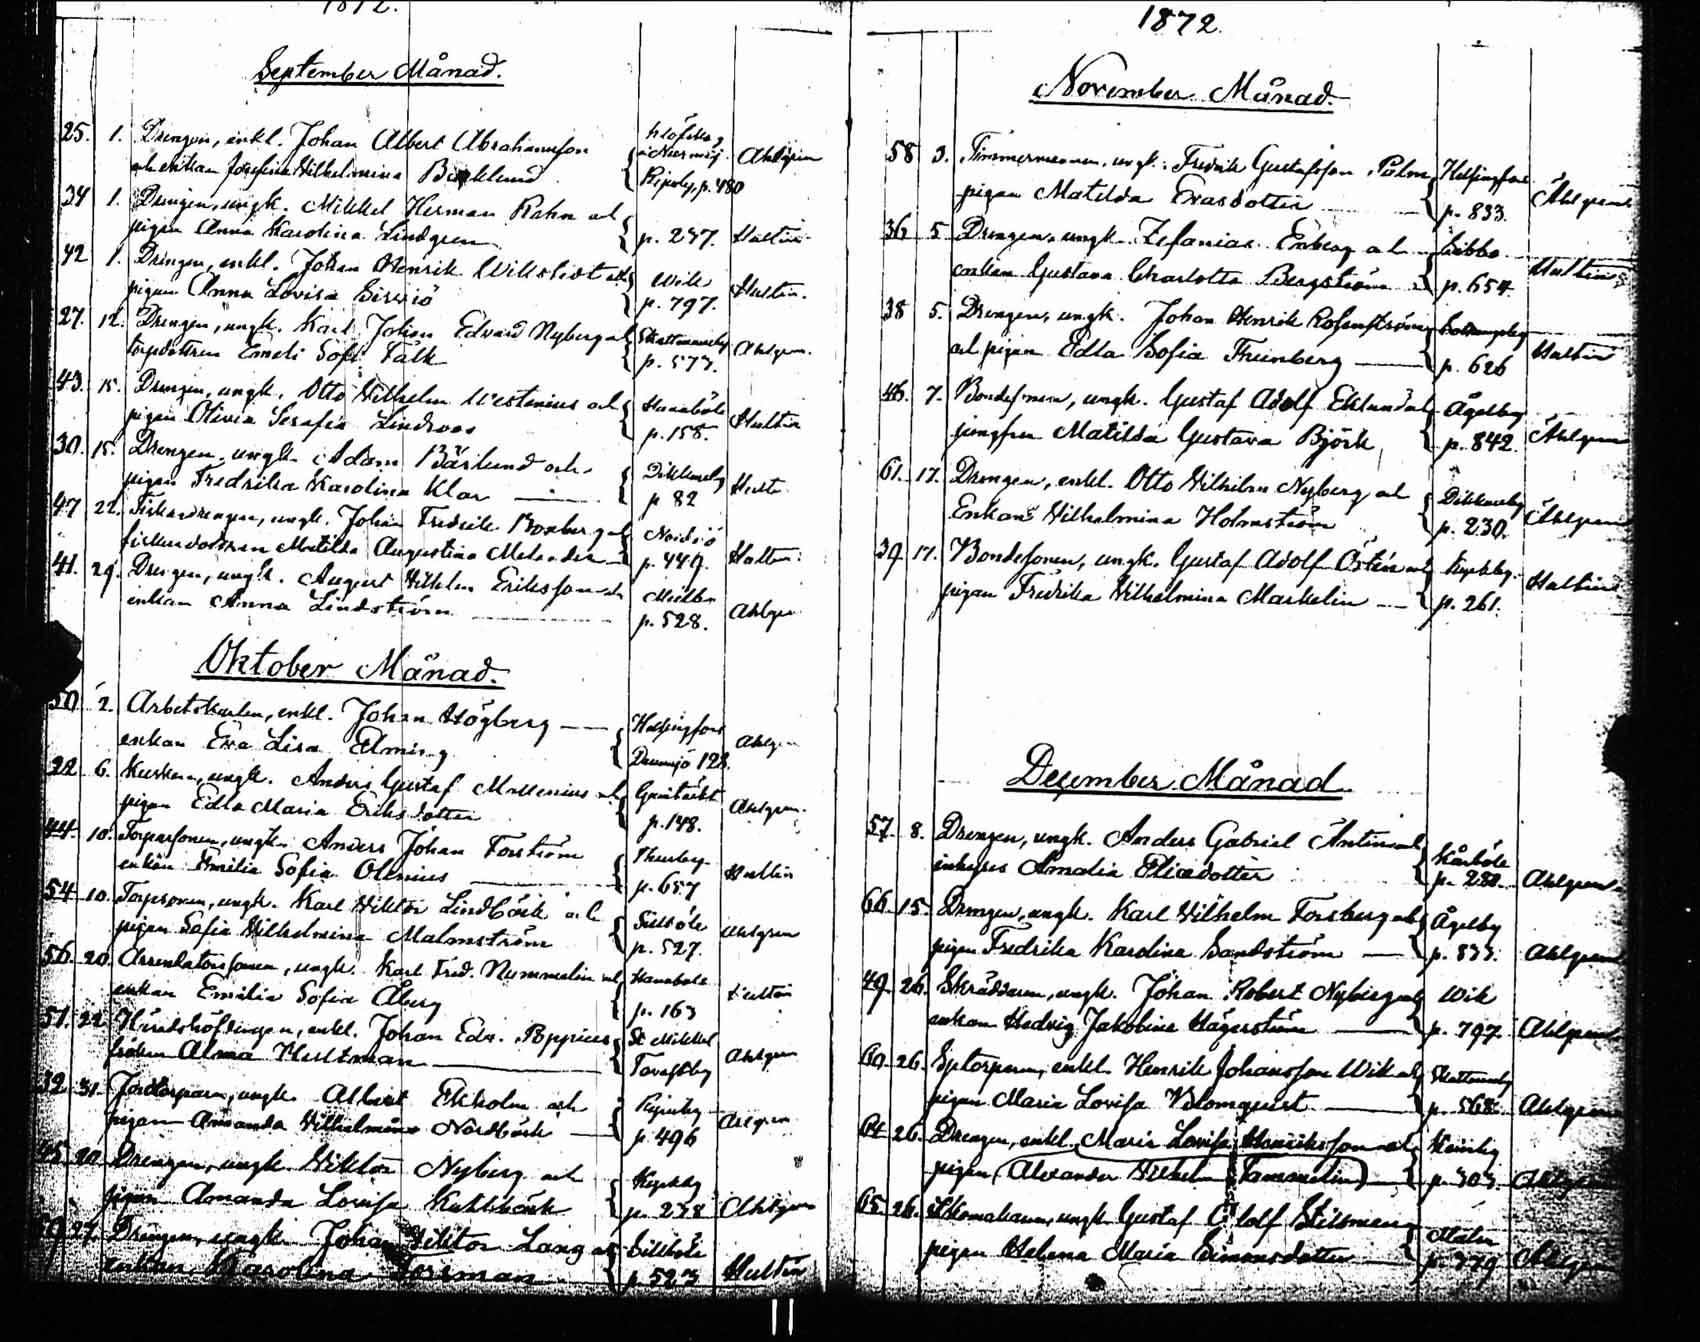 1872.
September Månad.
25. 1. Drengen, enkl. Johan Albert Abrahamsson
och enkan Josefina Wilhelmina Bäcklund
p. 480 Ahlgren
34 1. Drengen, ungk. Mikkel Herman Rahn och
pigan Anna Karolina Lindgren p. 237. Hultin
42 1. Drengen, enkl. Johan Henrik Wikstedt och
pigan Anna Lovisa Wik p. 797. Hultin.
27. 12. Drengen, ungk. Karl Johan Edvard Nyberg och
torpdottren Emeli Sofi Falk p. 573. Ahlgren.
43. 15. Drengen, ungk. Otto Wilhelm Westenius och
pigan Olivia Serafia Lindroos Hanaböle p. 158. Hultin
30. 15. Drengen, ungk. Adam Bärlund och
pigan Fredrika Karolina Klar Dikkursby p 82
47 22. Fiskardrengen, ungk. Johan Fredrik Boxberg och
Matilda Augustina Melander Nordsjö p. 449. Hultin
41. 29. Drengen, ungk. August Wilhelm Eriksson och
enkan Anna Lindström p. 528. Ahlgren
Oktober Månad.
50 2. Arbetskarlen, enkl. Johan Högberg
enkan Eva Lisa Elming Helsingfors 128. Ahlgren
22 6. Kusken, ungk. Anders Gustaf och
pigan Edla Maria Eriksdotter p. 148. Ahlgren.
44. 10. Torparsonen, ungk. Anders Johan Forström
enkan Emilia Sofia Olenius p. 657 Hultin
54 10. Torpsonen, ungk. Karl Viktor Lindbäck och
pigan Sofia Wilhelmina Malmström Sillböle p. 527. Ahlgren
56. 20. Arrendatorssonen, ungk. Karl Fred. Nummelin och
enkan Emilia Sofia Åberg Hanaböle p. 163 Hultin
51. 22. Häradshöfdingen, enkl. Johan Edv. Poppius
fröken Alma Hultman St Mikkel Ahlgren
32 31. ungk. Albert Ekholm och
pigan Amanda Wilhelmina Nordbäck p. 496 Ahlgren
45 20. Drengen, ungk. Viktor Nyberg och
pigan Amanda Lovisa p. 238 Ahlgren
59 27. Drengen, ungk. Johan Viktor Lang och
enkan Karolina Forsman Sillböle p. 523 Hultin
1872.
November Månad.
58 3. Timmermannen, ungk. Fredrik Gustafsson Palm Helsingfors
pigan Matilda Erasdotter p. 833. Ahlgren
36 5 Drengen, ungk. Zefanias Enberg och Sibbo
enkan Gustava Charlotta Bergström p. 654 Hultin
38 5. Drengen, ungk. Johan Henrik Rosenström
och pigan Edla Sofia Thunberg p. 626 Hultin
46. 7. Bondesonen, ungk. Gustaf Adolf Eklund och Ågelby
jungfru Matilda Gustava Björk p. 842. Ahlgren
61. 17. Drengen, enkl. Otto Wilhelm Nyberg och Dikkursby
Enkan Wilhelmina Holmström p. 230. Ahlgren
39 17. Bondesonen, ungk. Gustaf Adolf Östen och
pigan Fredrika Wilhelmina Markelin p. 261. Hultin
December Månad
57. 8. Drengen, ungk. Anders Gabriel Antinen och
inhyses Amalia Eliedotter Kårböle Ahlgren
66 15. Drengen, ungk. Karl Wilhelm Forsberg och Ågelby
pigan Fredrika Karolina Sandström p. 833. Ahlgren
49. 26. Skräddaren, ungk. Johan Robert Nyberg och Wik
enkan Hedvig Jakobina Hägerström p. 797. Ahlgren
60 26. enkl. Henrik Johansson Wik och
pigan Maria Lovisa Blomqvist p. 568 Ahlgren
64 26. Drengen, enkl. Maria Lovisa Henriksson och
pigan (Alexander Wilhelm Tammelin) p. 303. Ahlgren
65. 26. ungk. Gustaf Adolf
pigan Helena Maria Simonsdotter p. 779 Ahlgren